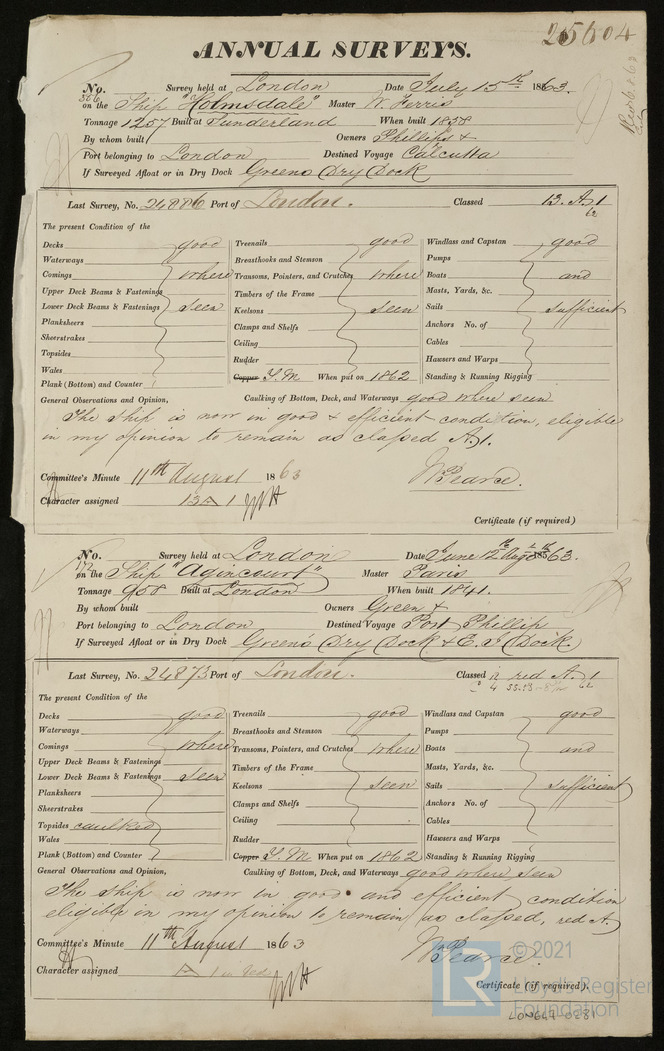 25604
ANNUAL SURVEYS.
No. 306 Survey held at London Date July 15th 1863.
on the Ship "Holmsdale" Master W. Ferris
Tonnage 1257 Built at Sunderland When built 1858
By whom built Owners Phillips &
Port belonging to London Destined Voyage Calcutta
If Surveyed Afloat or in Dry Dock Greens Dry Dock
Last Survey, No. 24886 Port of London. Classed 13. A.1
62
The present Condition of the
Decks good Treenails good Windlass and Capstan good
Waterways Breasthooks and Stemson Pumps
Comings where Transoms, Pointers, and Crutches where Boats and
Upper Deck Beams & Fastenings Timbers of the Frame Masts, Yards, &c.
Lower Deck Beams & Fastenings seen Keelsons seen Sails sufficient
Planksheers Clamps and Shelfs Anchors No. of
Sheerstrakes Ceiling Cables
Topsides Rudder Hawsers and Warps
Wales Copper Y.M. When put on 1862 Standing & Running Rigging
Plank (Bottom) and Counter
General Observations and Opinion, Caulking of Bottom, Deck, and Waterways good where seen
The ship is now in good & efficient condition, eligible
in my opinion to remain as classed A.1.
Committee's Minute 11th August 1863
W Pearce.
Character assigned 13 A 1
Certificate (if required)
No. 172 Survey held at London Date June 12th Aug 1863.
on the Ship "Agincourt" Master Paris
Tonnage 958 Built at London When built 1841.
By whom built Owners Green &
Port belonging to London Destined Voyage Port Phillip
If Surveyed Afloat or in Dry Dock Green's Dry Dock & E. I Dock.
Last Survey, No. 24873 Port of London. Classed in red A. 1
62
The present Condition of the
Decks good Treenails good Windlass and Capstan good
Waterways Breasthooks and Stemson Pumps
Comings where Transoms, Pointers, and Crutches where Boats and
Upper Deck Beams & Fastenings Timbers of the Frame Masts, Yards, &c.
Lower Deck Beams & Fastenings seen Keelsons seen Sails sufficient
Planksheers Clamps and Shelfs Anchors No. of
Sheerstrakes Ceiling Cables
Topsides caulked
Wales Rudder Hawsers and Warps
Plank (Bottom) and Counter Copper Y.M. When put on 1862 Standing & Running Rigging
General Observations and Opinion, Caulking of Bottom, Deck, and Waterways good where seen
The ship is now in good and efficient condition
eligible in my opinion to remain as classed, red A.
Committee's Minute 11th August 1863
W Pearce.
Character assigned A 1 in red
Certificate (if required).
© 2021
LR
Lloyd's Register
Foundation
LON649-0281